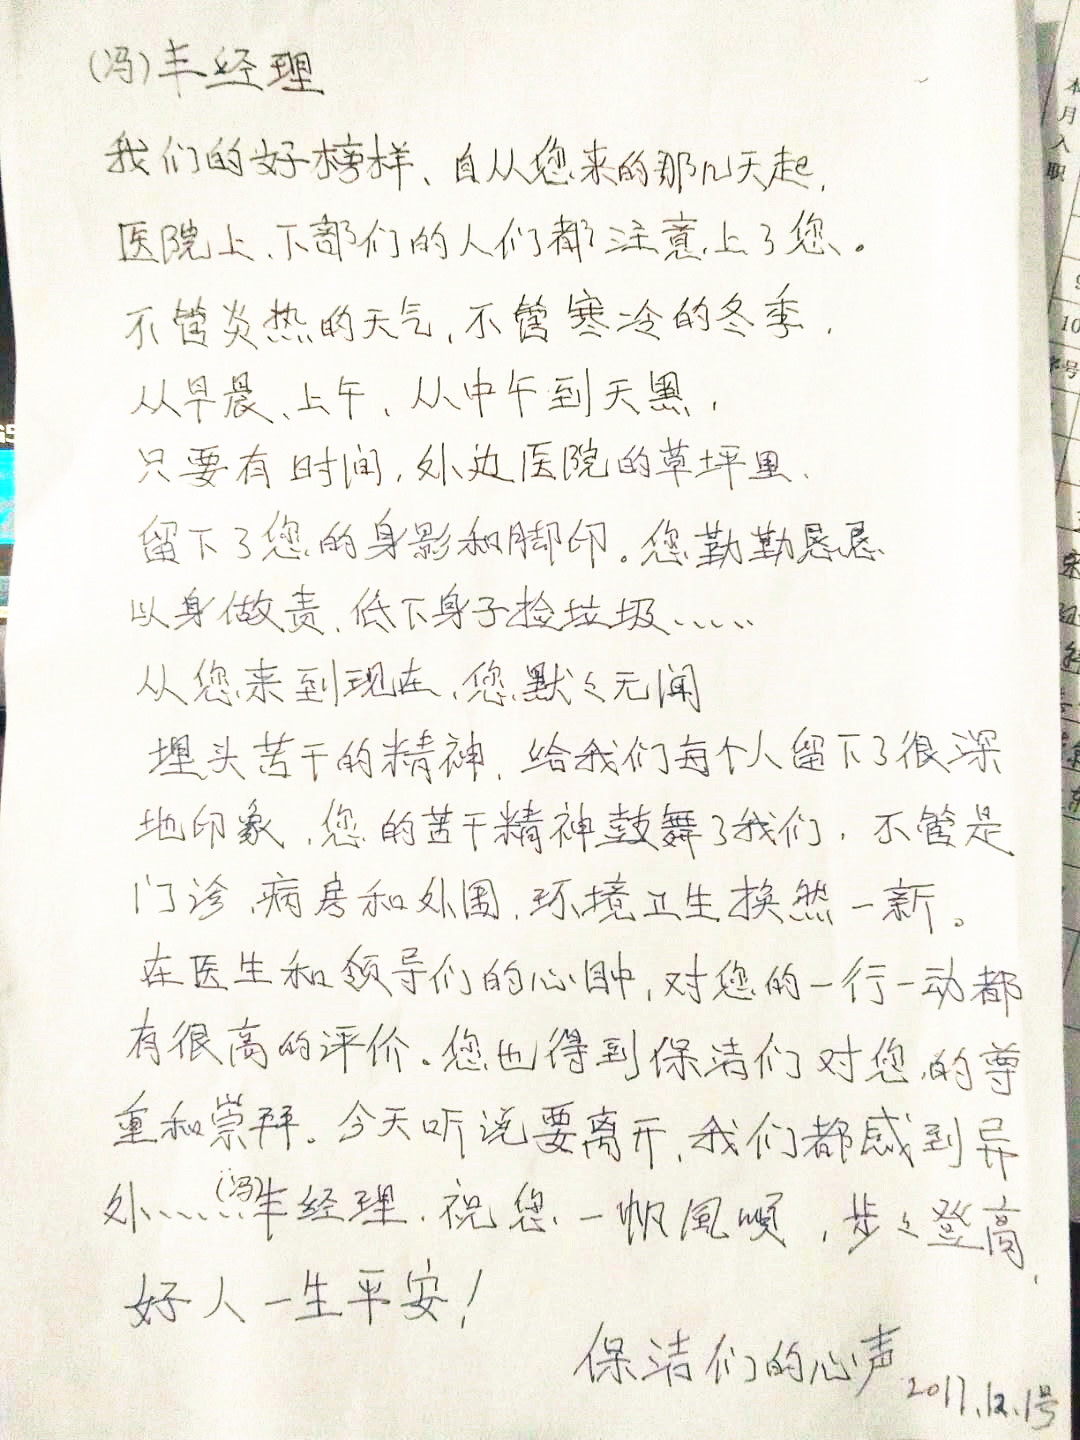 (冯)丰经理
我们的好榜样、自从您来的那几天起,
医院上、下部们的人们都注意上了您。
不管炎热的天气,不管寒冷的冬季,
从早晨、上午,从中午到天黑,
只要有时间,外边医院的草坪里、
留下了您的身影和脚印。您勤勤恳恳
以身做责,低下身子捡垃圾、、、、、
从您来到现在、您默々无闻
埋头苦干的精神,给我们每个人留下了很深
地印象,您的苦干精神鼓舞了我们,不管是
门诊、病房和外围,环境卫生换然一新。
在医生和领导们的心目中,对您的一行一动都
有很高的评价。您也得到保洁们对您的尊
重和崇拜。今天听说要离开,我们都感到异
外、、、、、(冯)丰经理,祝您一帆風順,步々登高,
好人一生平安!
保洁们的心声
2017.12.1号
本月入职
10